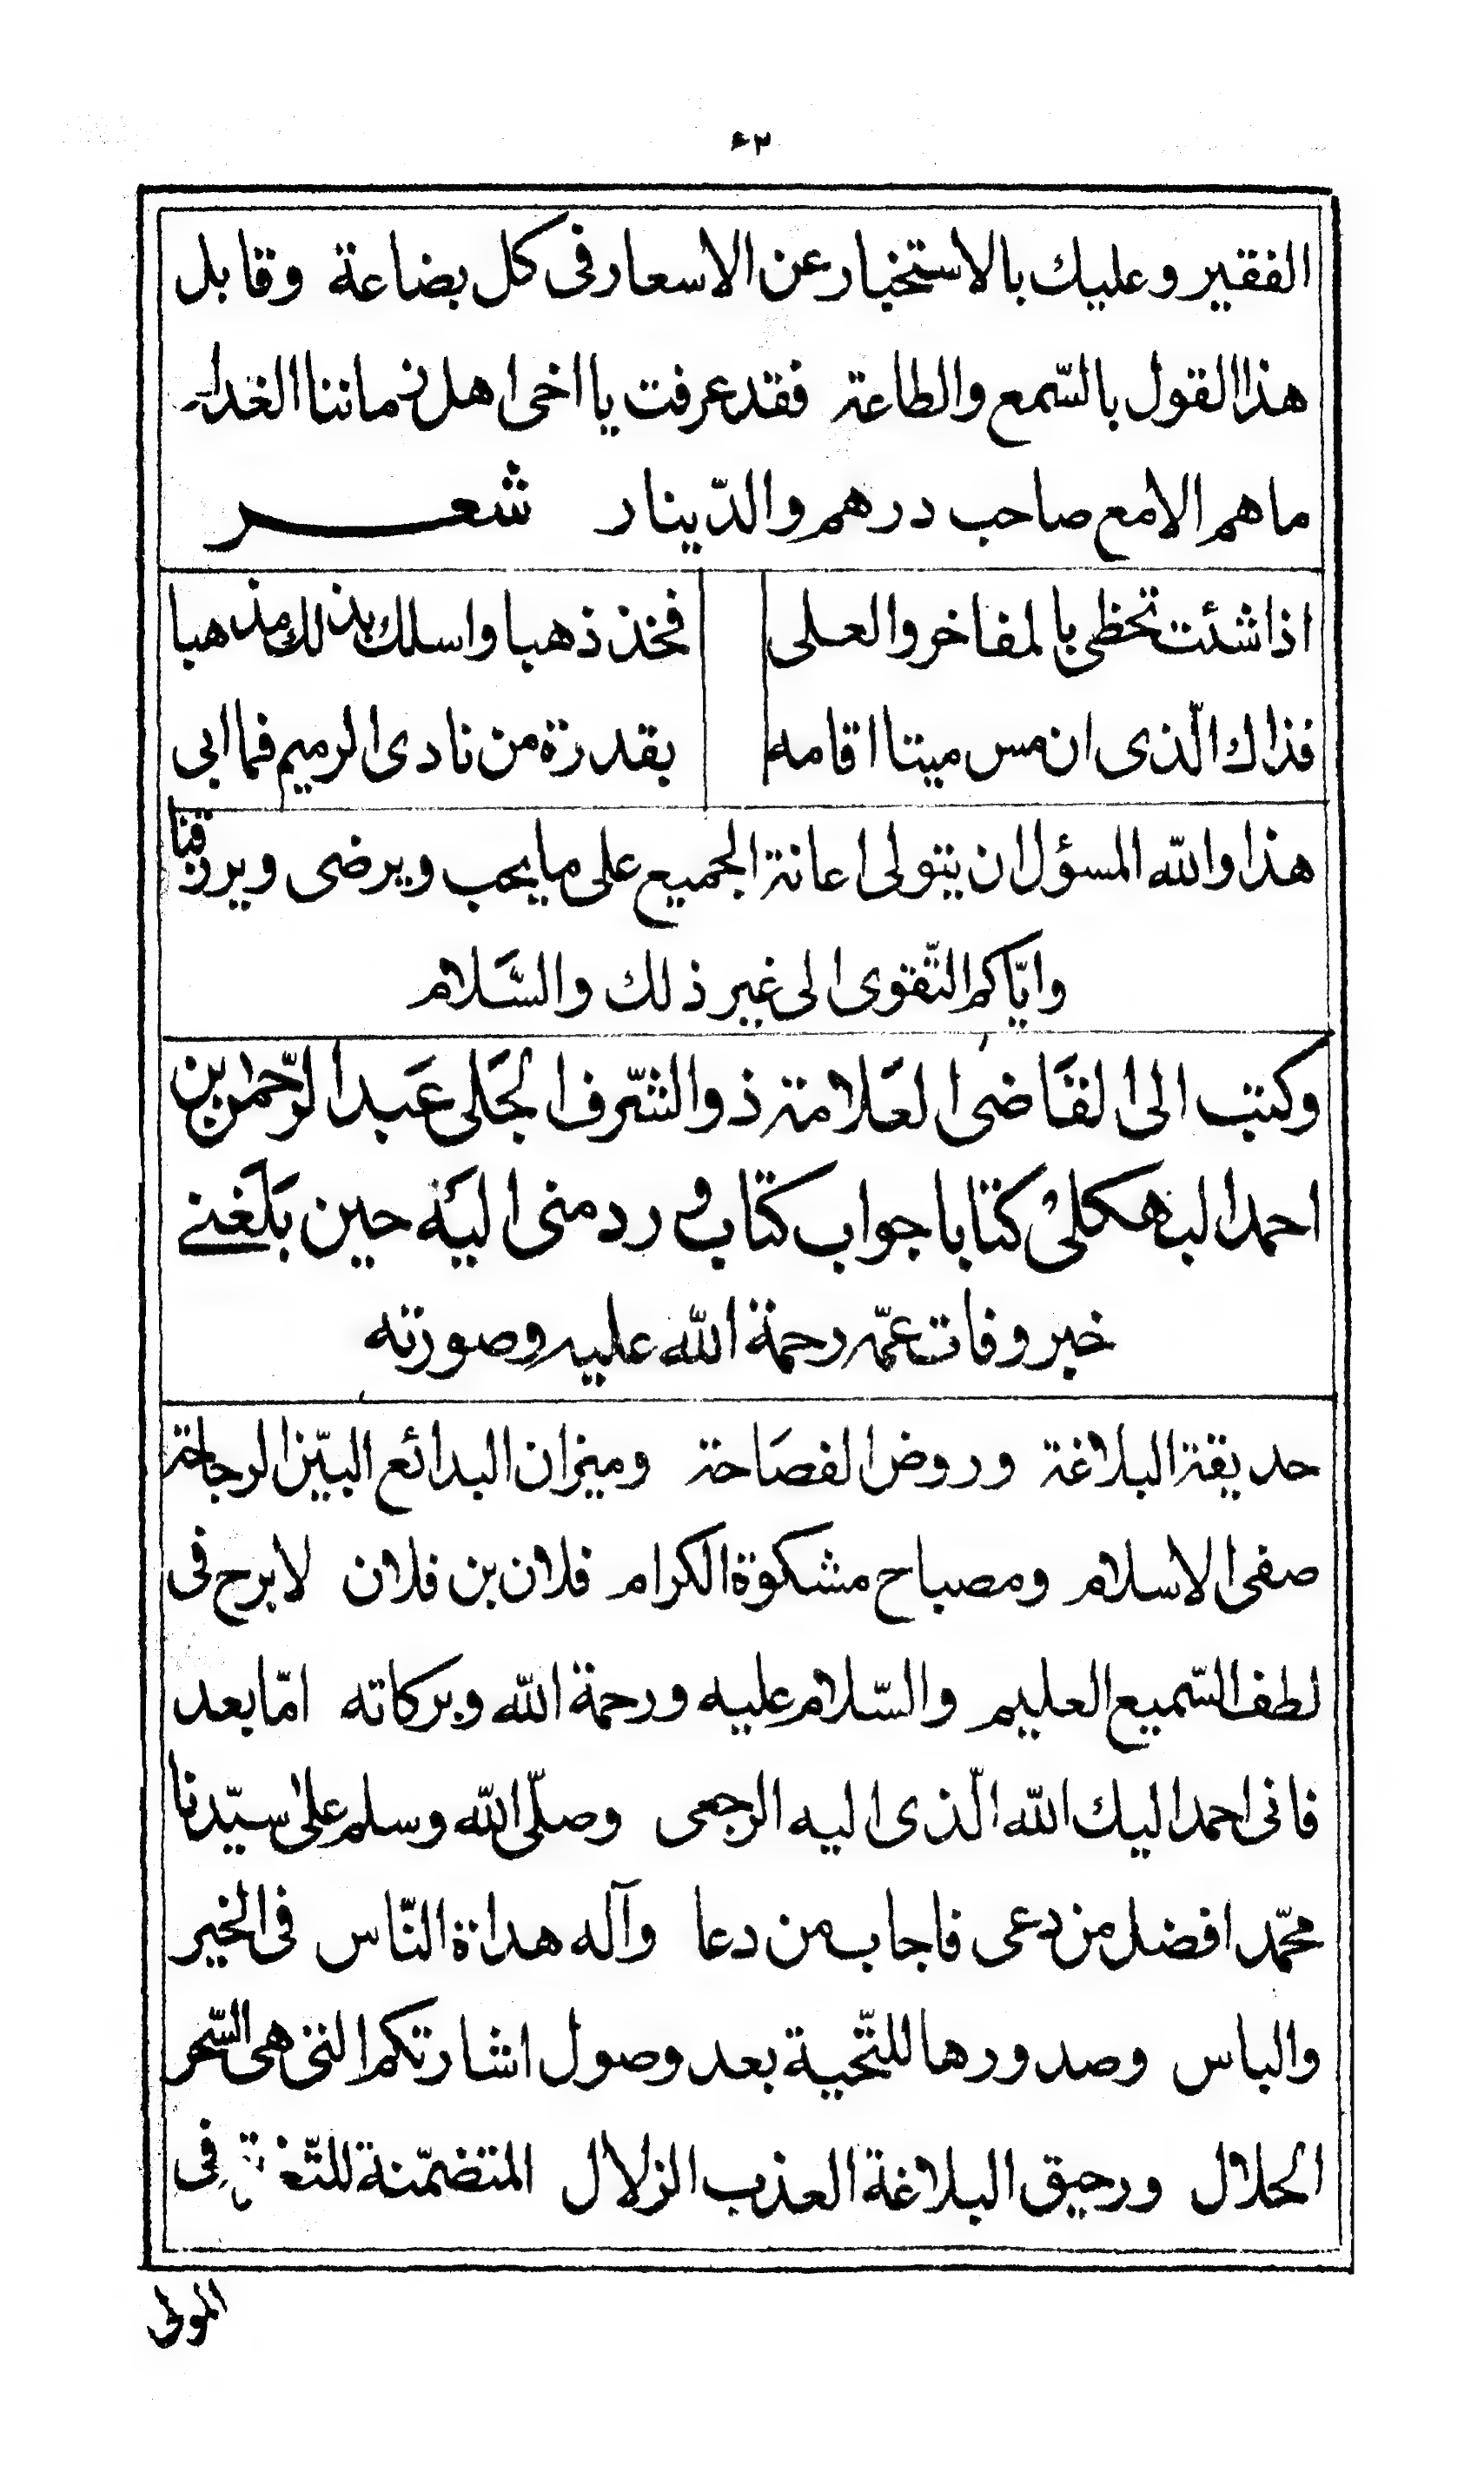 الفقير وعليك بالاستخبار عن الاسعار فى كل بضاعة وقابل
هذا القول بالسّمع والطاعة فقد عرفت يا اخى اهل زماننا الغدار
ما هم الا مع صاحب درهم والدّينار شعر
اذا شئت تحظى بالمفاخر والعلى فخذ ذهبا واسلك بذلك مذهبا
فذاك الّذى ان مس ميتا اقامه بقدرة من نادى الرميم فما ابى
هذا والله المسؤل ان يتولى اعانة الجميع على ما يحب ويرضى ويرزقنا
وايّاكم التّقوى الى غير ذلك والسَّلام
وكتب الى القَاضى العَلامة ذو الشّرف الجَلى عَبد الرّحمٰن بن
احمد البهكلى كتابا جواب كتاب ورد منى اليَه حين بَلَغنے
خبر وفات عمّه رحمة الله عليه وصورته
حديقة البلاغة وروض الفصَاحة وميزان البدائع البيّن الرجاحة
صفى الاسلام ومصباح مشكوة الكرام فلان بن فلان لا برح فى
لطف السّميع العليم والسّلام عليه ورحمة الله وبركاته امّا بعد
فانى احمد اليك الله الّذى اليه الرجعى وصلّى الله وسلم علىٰ سيّدنا
محمّد افضل من دعى فاجاب من دعا وآله هداة النّاس فى الخير
والباس وصدورها للتّحية بعد وصول اشارتكم التى هى السّحر
الحلال ورحيق البلاغة العذب الزلال المتضمّنة للتّعزية فى
المولى